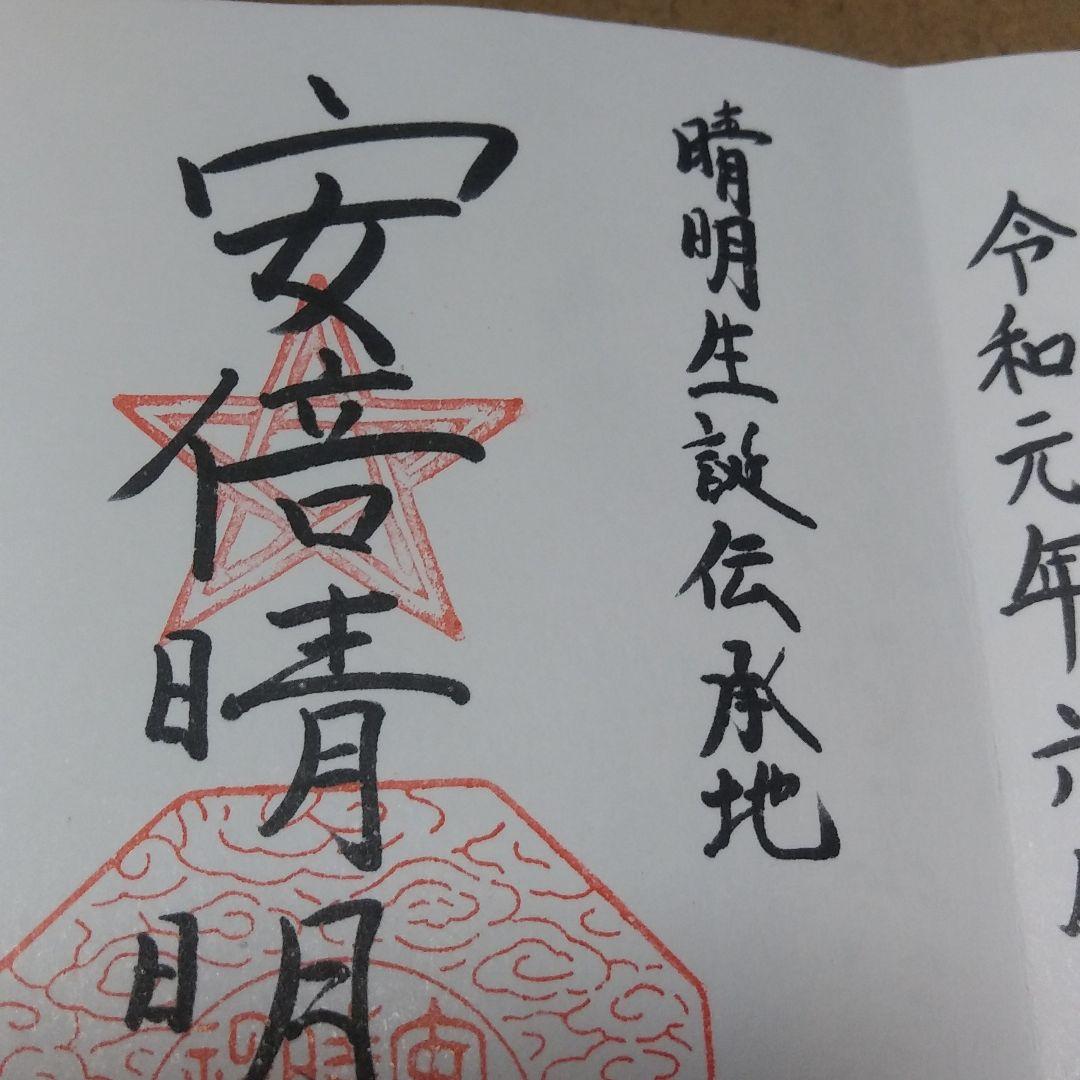 令和元年六月
晴明生誕伝承地
安倍晴明